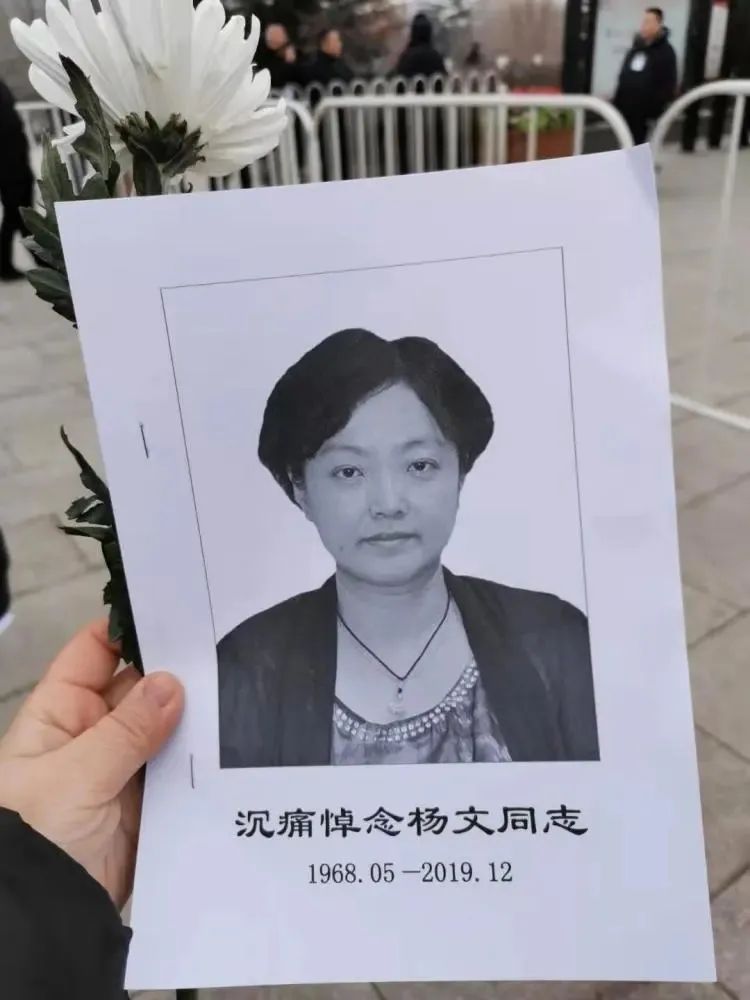 沉痛悼念杨文同志
1968.05—2019.12